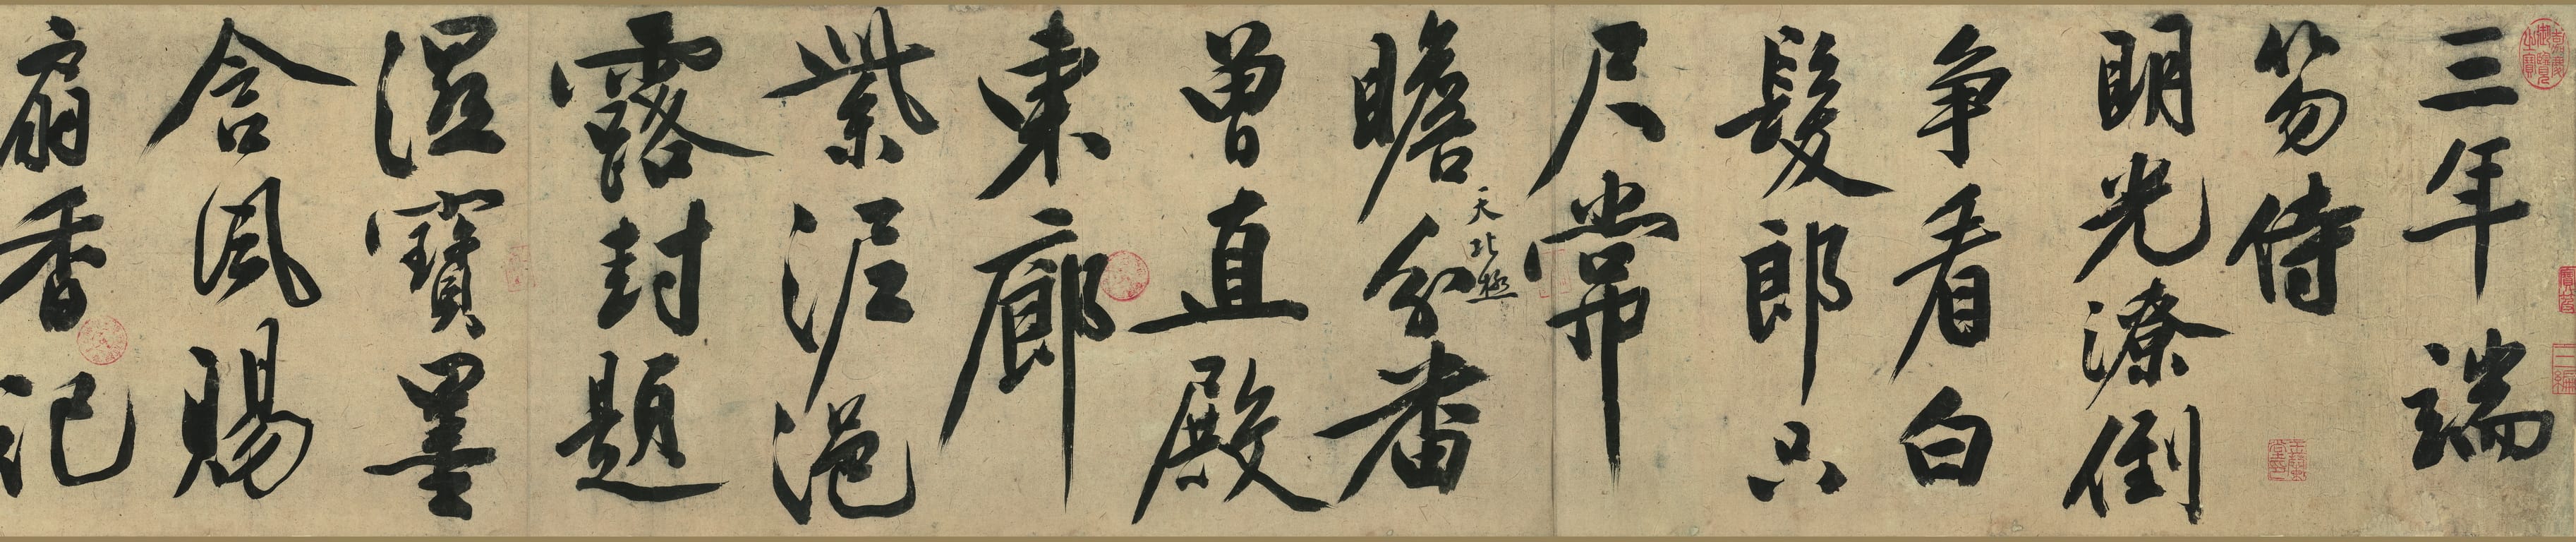 三年端
笏侍
明光潦倒
争看白
髮郎只
尺常
瞻天北極分番
曾直殿
東廊
紫泥浥
露封題
濕寶墨
含風賜
扇香記